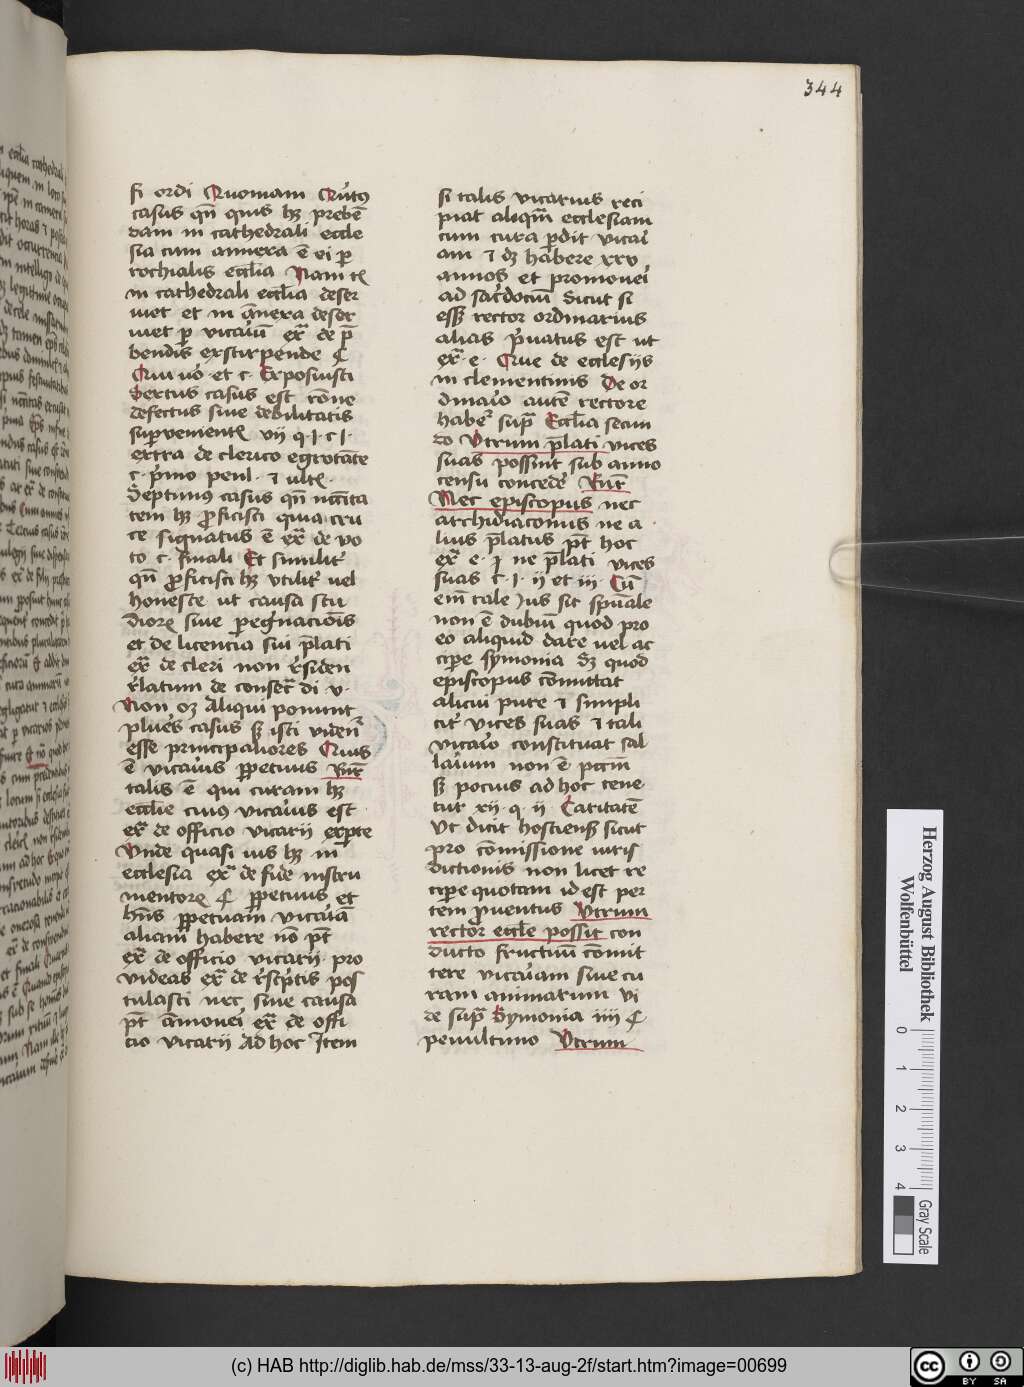 344
si ordi Quoniam Quintꝰ
casus qn̄ quis hꝫ preben̄
dam in cathedrali eccle
sia cum annexa ē ei p̲
rochialis eccl̄ia Nam
in cathedrali eccl̄ia deser
uiet et in ānexa deser
uiet p̲ vicariū ex̄ de p̄
bendis exstirpende ¶
Qui vo et c. Exposuisti
Sextus casus est rōne
defectus siue debilitatis
supuenient vij q. j. c j.
extra de clerico egrotāte
c. p̄mo penl. ⁊ ult
Septimꝰ casus qn̄ nccīta
tem hꝫ p̲ficisci quia cru
ce signatus ē ex̄ de vo
to c. finali Et similit̄
qn̄ p̲ficisci hꝫ vtilit̄ uel
honeste ut causa stu
dioꝝ siue pegrnacionis
et de licencia sui p̄lati
ex̄ de cleri non r̄siden
r̄latum de consecr̄ di v.
Non oꝫ Aliqui ponunt
plures casus sꝫ isti viden̄
esse principaliores Quis
ē vicarius p̲petuus Rn̄r
talis ē qui curam hꝫ
eccl̄ie cuiꝰ vicarius est
ex̄ de officio vicarij exp̲te
Vnde quasi ius hꝫ in
ecclesia ex̄ de fide instru
mentoꝝ ¶ p̲petuus et
hn̄s p̲petuam vicariā
aliam habere nō p̄t
ex̄ de officio vicarij pro
videas ex̄ de r̄sc̄ptis pos
tulasti nec siue causa
p̄t āmoueri ex̄ de offi
cio vicarij Ad hoc Item
si talis vicarius reci
piat aliqm̄ ecclesiam
cum cura p̲dit vicari
am ⁊ dꝫ habere xxv
annos et promoueri
ad sac̄dociū Sicut si
essꝫ rector ordinarius
alias p̄uatus est ut
ex̄. e. Que de ecclesijs
in clementinis De or
dinario autē rectore
habeꝰ sup̄ Eccl̄ia secun
do Vtrum p̄lati vices
suas possint sub anno
censu concede Rn̄r
Nec episcopus nec
archidiaconus ne a
lius p̄latus p̄t hoc
ex̄ e. j ne p̄lati vices
suas c. j. ij et iij Cū
em̄ tale ius sit sp̄uale
non ē dubiū quod pro
eo aliquid dare uel ac
cipe symonia Sꝫ quod
episcopus cōmittat
alicui pure ⁊ simpli
cit̄ vices suas ⁊ tali
vicario constituat sal
larium non ē pctm̄
sꝫ pocius ad hoc tene
tur xij q. ij Caritatē
Vt dicit hostiensꝫ sicut
pro cōmissione iuris
dictionis non licet re
cipe quotam id est per
tem p̲uentus Vtrum
rector eccl̄e possit con
ducto fructuū cōmit
tere vicariam siue cu
ram animarum vi
de sup̄ Symonia iiij ¶
penultimo Vtrum
Herzog August Bibliothek
Wolfenbüttel
0 1 2 3 4
Gray Scale
(c) HAB http://diglib.hab.de/mss/33-13-aug-2f/start.htm?image=00699
cc BY SA